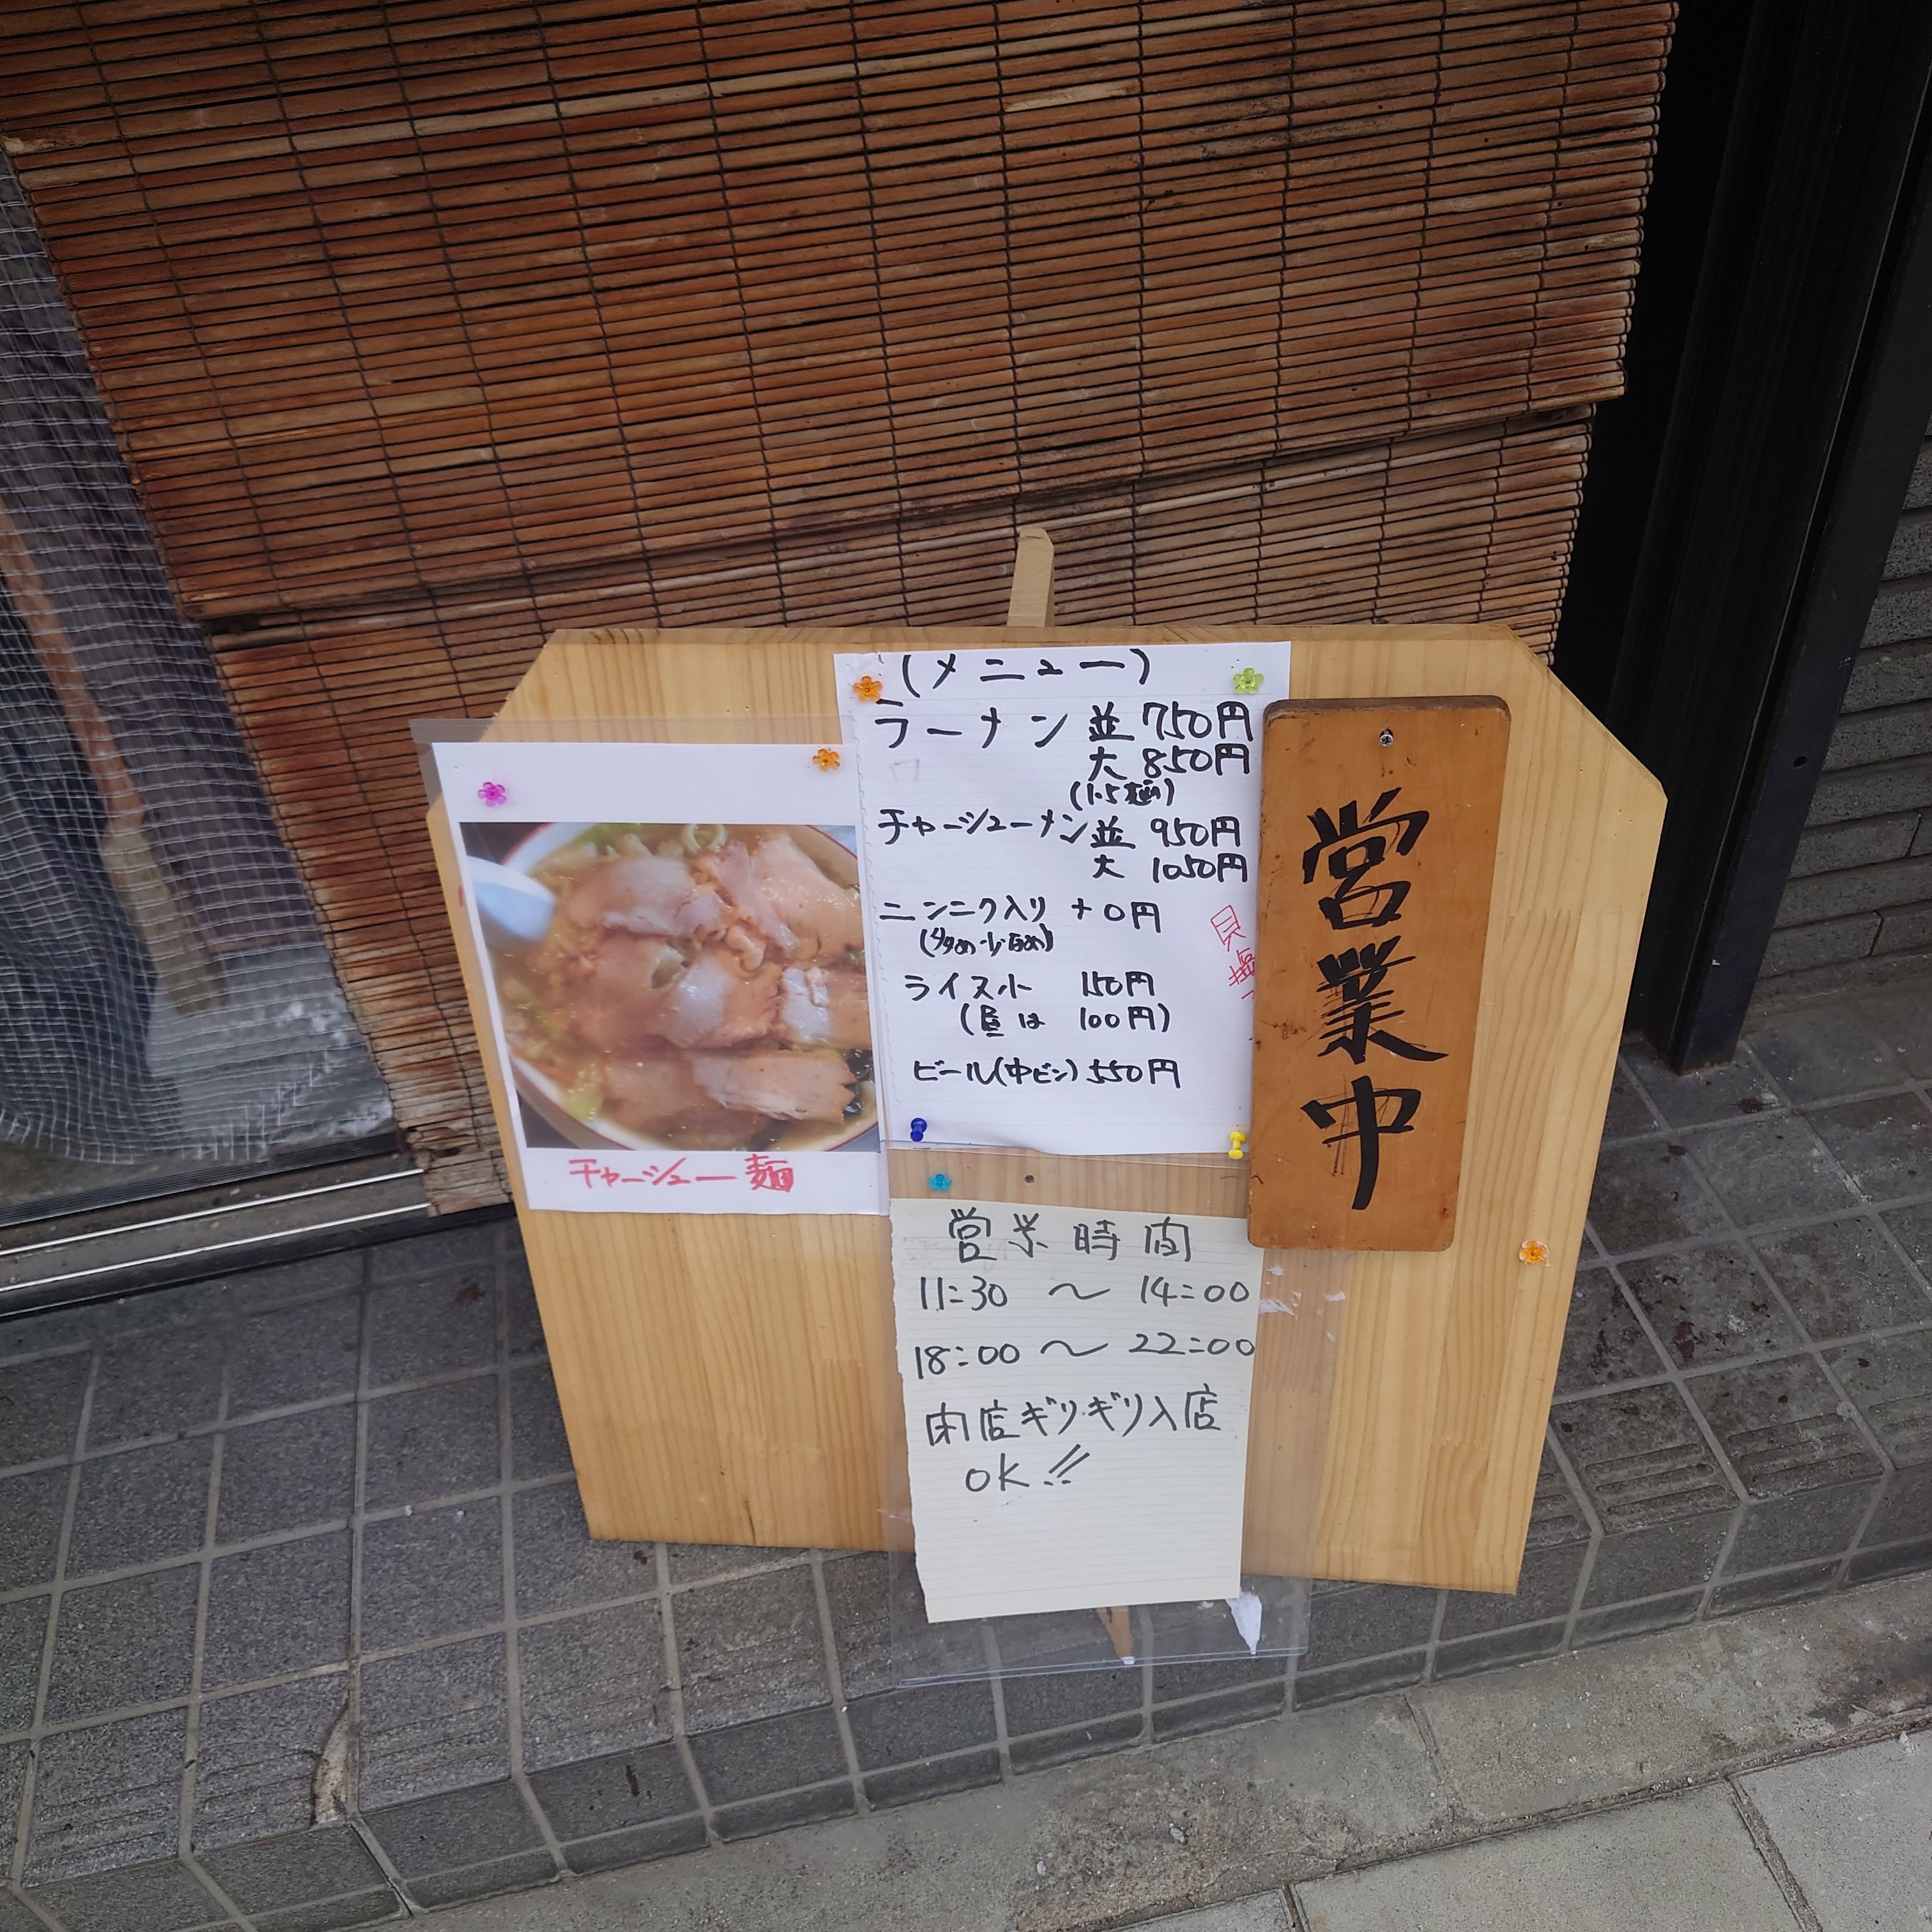 (メニュー)
ラーメン 並 750円
大 850円
(1.5麺)
チャーシューメン 並 950円
大 1050円
ニンニク入り +0円
ライス小 150円
(昼は 100円)
ビール(中ビン) 550円
チャーシュー麺
営業中
営業時間
11:30 〜 14:00
18:00 〜 22:00
閉店ギリギリ入店
OK!!